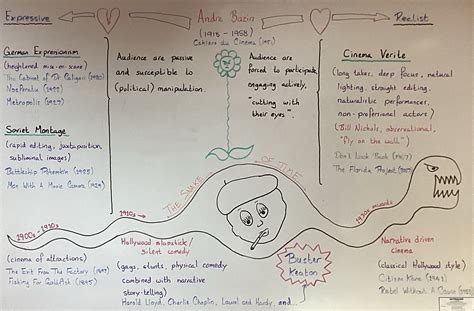 Expressive
André Bazin
(1918 - 1958)
Cahiers du Cinema (1951)
Realist
German Expressionism
(heightened mise-en-scene)
The Cabinet of Dr Caligari (1920)
Nosferatu (1922)
Metropolis (1927)
Soviet Montage
(rapid editing, juxtaposition,
subliminal images)
Battleship Potemkin (1925)
Man With A Movie Camera (1929)
Audience are passive
and susceptible to
(political) manipulation.
Audience are
forced to participate,
engaging actively,
"cutting with
their eyes".
Cinema Vérité
(long takes, deep focus, natural
lighting, straight editing,
naturalistic performances,
non-professional actors)
(Bill Nichols, observational,
"fly on the wall")
Don't Look Back (1967)
The Florida Project (2017)
THE SNAKE OF TIME
1900s - 1910s
1910s
1920s
1930s onwards
cinema of attractions
The Exit From The Factory (1897)
Fishing For Goldfish (1895)
Hollywood slapstick/
silent comedy
(gags, stunts, physical comedy
combined with narrative
story-telling)
Harold Lloyd, Charlie Chaplin, Laurel and Hardy, and...
Buster
Keaton
Narrative driven
cinema
(classical Hollywood style)
Citizen Kane (1941)
Rebel Without A Cause (1955)